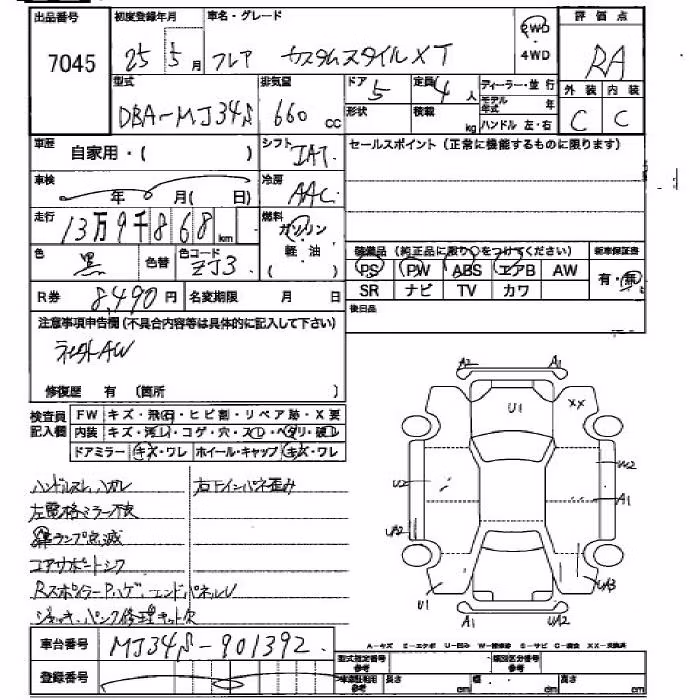 出品番号 初度登録年月 車名・グレード 2WD 評価点
7045 25 5月 フレア カスタムスタイルXT ・4WD RA
型式 排気量 ドア 定員 ディーラー・並行 外装 内装
DBA-MJ34S 660 cc 5 4人 モデル年式 年 C C
形状 積載 kg ハンドル 左・右
車歴 自家用・( ) シフト IAT セールスポイント(正常に機能するものに限ります)
車検 年 月( 日) 冷房 AAC
走行 13万9千868 km 燃料 ガソリン
軽・油
( )
色 黒 色替 色コード ZJ3 装備品(純正品に限り○をつけてください) 新車保証書
PS PW ABS エアB AW 有・無
R券 8,490円 名変期限 月 日 SR ナビ TV カワ
注意事項申告欄(不具合内容等は具体的に記入して下さい) 後日品
社外AW
修復歴 有 (箇所 )
検査員 FW キズ・飛石・ヒビ割・リペア跡・X要
記入欄 内装 キズ・汚レ・コゲ・穴・スレ・ヘタリ・破レ
ドアミラー キズ・ワレ ホイール・キャップ キズ・ワレ
ハンドルスレ、ハガレ 右下インパネ歪み
左電格ミラー不良
ランプ点滅
コアサポートシワ
Rスポイラー P.ハゲ、エンドパネルU
ジャッキ、パンク修理キット欠
A2 A1
U1 XX
U2 U2
A1
UA2
U1 UA3
A1 UA2
車台番号 MJ34S-901392
A-キズ E-エクボ U-凹み W-補修跡 S-サビ C-腐食 XX-交換済
登録番号 型式指定番号 参考 類別区分番号 参考
車庫証明用 参考 長さ cm 幅 cm 高さ cm